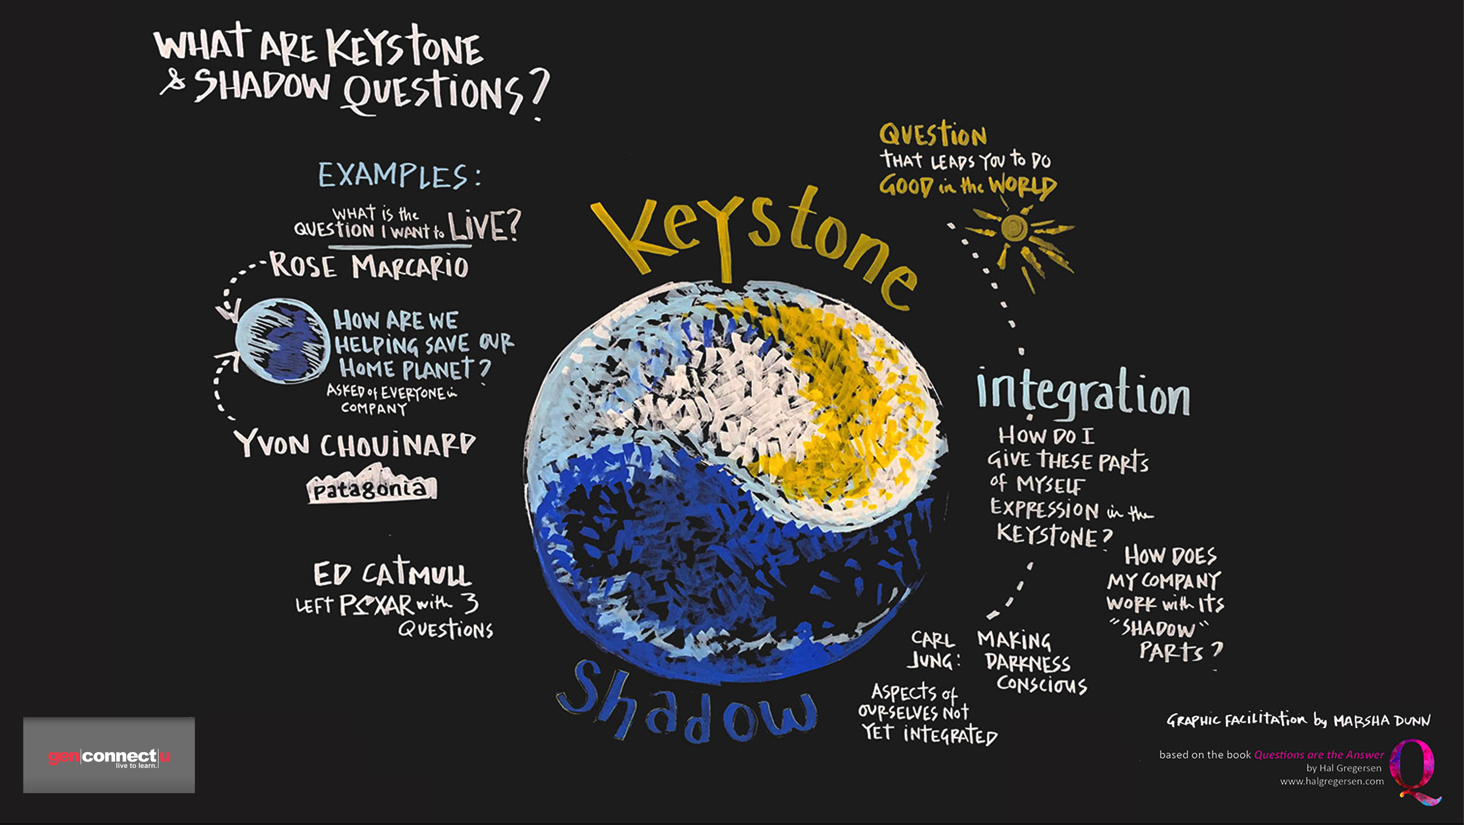 WHAT ARE KEYSTONE
& SHADOW QUESTIONS?
EXAMPLES:
WHAT is the
QUESTION I WANT to LIVE?
ROSE MARCARIO
HOW ARE WE
HELPING SAVE OUR
HOME PLANET?
ASKED of EVERYONE in
COMPANY
YVON CHOUINARD
patagonia
ED CATMULL
LEFT PIXAR with 3
QUESTIONS
Keystone
Shadow
QUESTION
THAT LEADS YOU to DO
GOOD in the WORLD
integration
HOW DO I
GIVE THESE PARTS
of MYSELF
EXPRESSION in the
KEYSTONE?
HOW DOES
MY COMPANY
WORK with ITS
"SHADOW"
PARTS?
MAKING
DARKNESS
CONSCIOUS
CARL
JUNG:
ASPECTS of
OURSELVES NOT
YET INTEGRATED
gen|connect|u
live to learn.
GRAPHIC FACILITATION by MARSHA DUNN
based on the book Questions are the Answer
by Hal Gregersen
www.halgregersen.com
Q